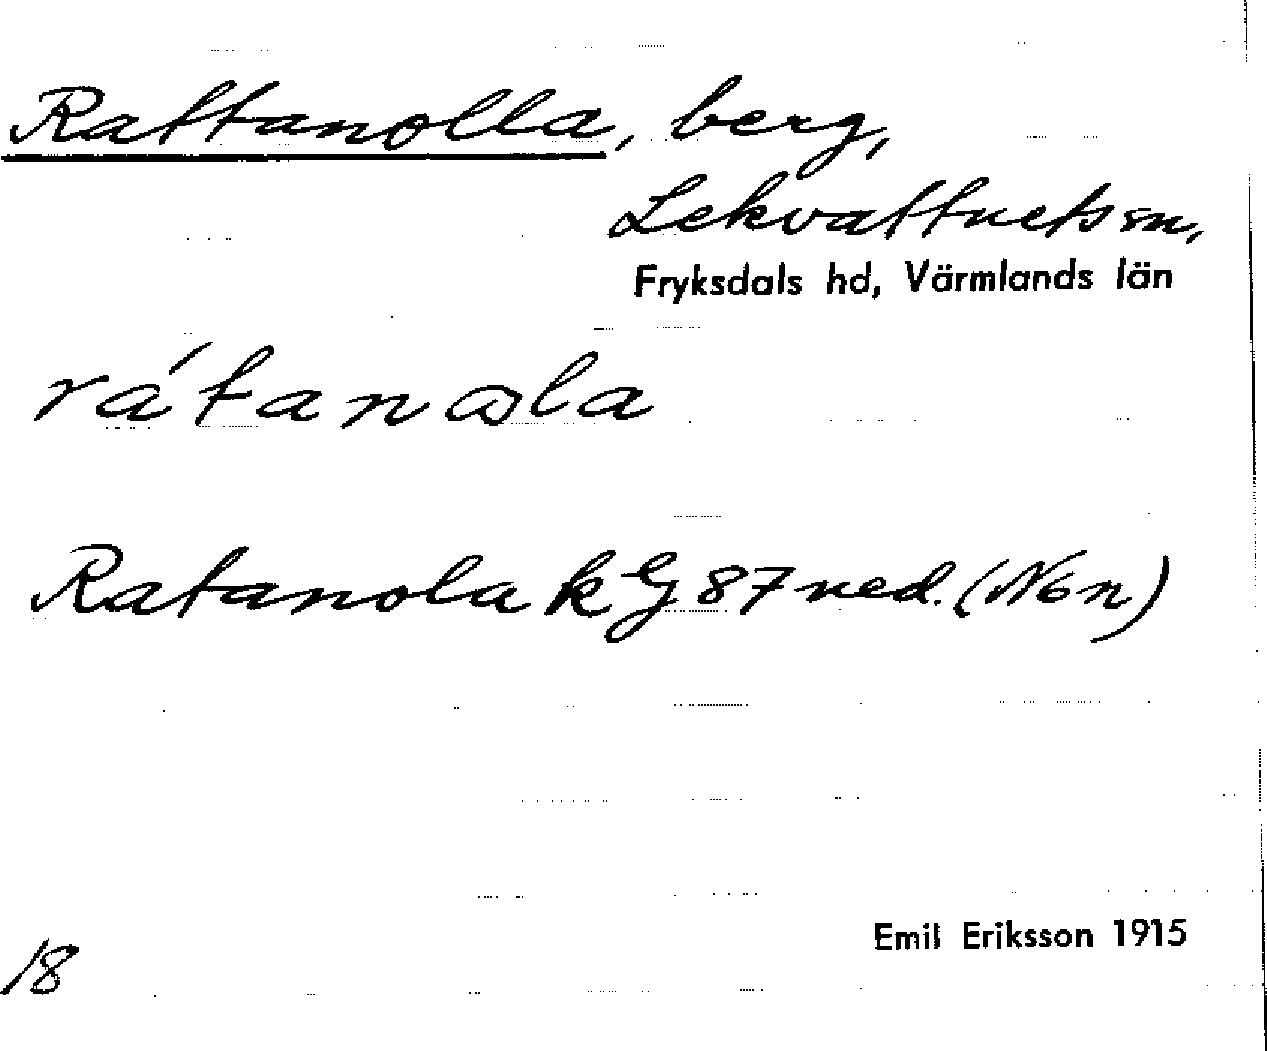 Rattanolla, berg,
Lekvattnets sn,
Fryksdals hd, Värmlands län
rátanωla
Ratanola k Ej 87 ned. (N6n)
Emil Eriksson 1915
18